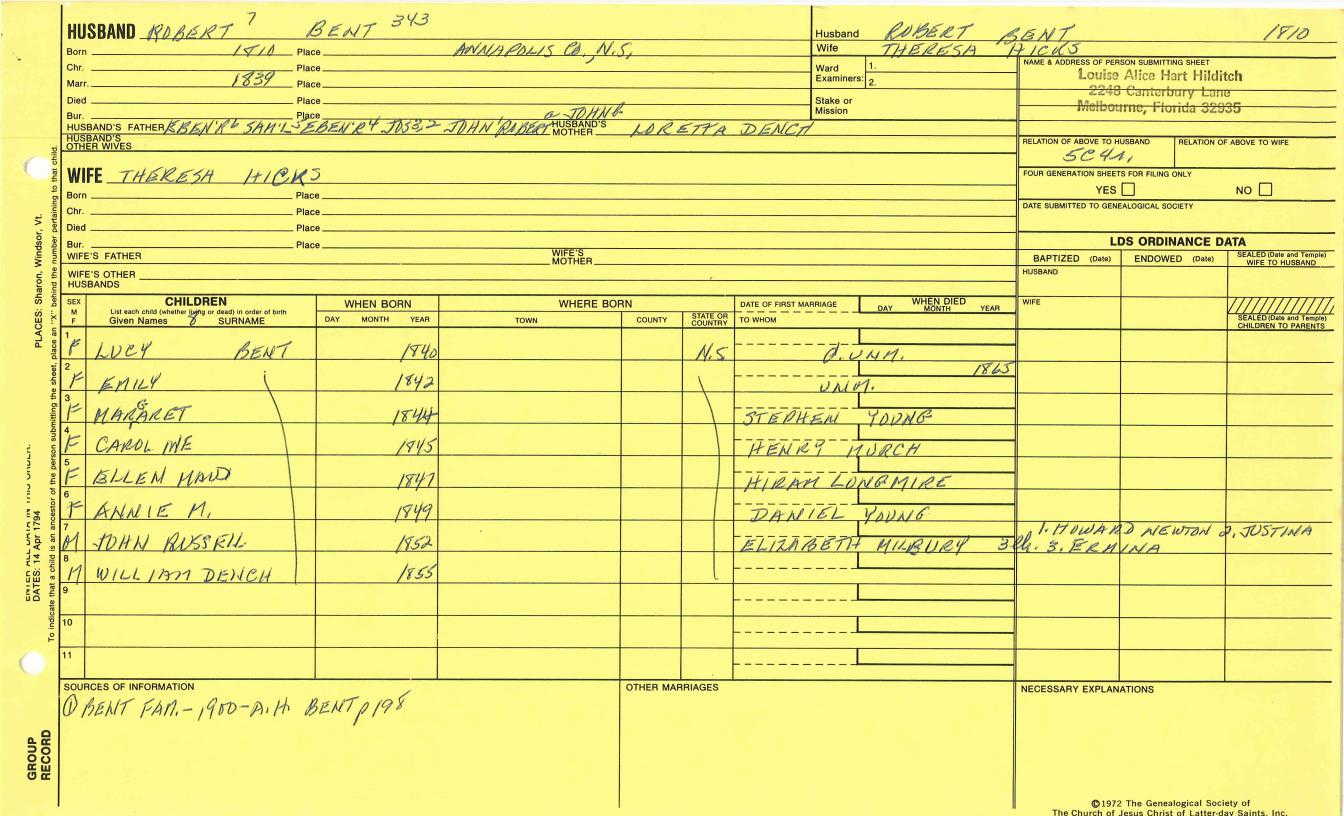 HUSBAND ROBERT 7 BENT 343
Born 1810 Place ANNAPOLIS CO., N.S.
Chr. Place
Marr. 1839 Place
Died Place
Bur. Place
a JOHN
HUSBAND'S FATHER EBEN'R 6 SAM'L 5 EBEN'R 4 JOS 3, 2 JOHN 1 ROBERT HUSBAND'S MOTHER LORETTA DENCH
HUSBAND'S OTHER WIVES
WIFE THERESA HICKS
Born Place
Chr. Place
Died Place
Bur. Place
WIFE'S FATHER WIFE'S MOTHER
WIFE'S OTHER HUSBANDS
Husband ROBERT BENT 1810
Wife THERESA HICKS
Ward Examiners: 1.
2.
Stake or Mission
NAME & ADDRESS OF PERSON SUBMITTING SHEET
Louise Alice Hart Hilditch
2248 Canterbury Lane
Melbourne, Florida 32935
RELATION OF ABOVE TO HUSBAND RELATION OF ABOVE TO WIFE
5C4r.
FOUR GENERATION SHEETS FOR FILING ONLY
YES NO
DATE SUBMITTED TO GENEALOGICAL SOCIETY
LDS ORDINANCE DATA
BAPTIZED (Date) ENDOWED (Date) SEALED (Date and Temple) WIFE TO HUSBAND
HUSBAND
WIFE
SEALED (Date and Temple) CHILDREN TO PARENTS
SEX M F
CHILDREN
List each child (whether living or dead) in order of birth
Given Names 8 SURNAME
WHEN BORN
DAY MONTH YEAR
WHERE BORN
TOWN COUNTY STATE OR COUNTRY
DATE OF FIRST MARRIAGE
TO WHOM
WHEN DIED
DAY MONTH YEAR
1 F LUCY BENT 1840 N.S d. UNM.
2 F EMILY 1842 UNM. 1865
3 F MARGARET 1844 STEPHEN YOUNG
4 F CAROLINE 1845 HENRY MURCH
5 F ELLEN MAUD 1847 HIRAM LONGMIRE
6 F ANNIE M. 1849 DANIEL YOUNG
7 M JOHN RUSSELL 1852 ELIZABETH MILBURY 3 ch. 1. HOWARD NEWTON 2. JUSTINA
3. ERMINA
8 M WILLIAM DENCH 1855
9
10
11
SOURCES OF INFORMATION
① BENT FAM. - 1900 - A.H. BENT p 198
OTHER MARRIAGES
NECESSARY EXPLANATIONS
©1972 The Genealogical Society of
The Church of Jesus Christ of Latter-day Saints, Inc.
PLACES: Sharon, Windsor, Vt.
To indicate that a child is an ancestor of the person submitting the sheet, place an "X" behind the number pertaining to that child.
ENTER ALL DATA IN THIS ORDER:
DATES: 14 Apr 1794
GROUP RECORD